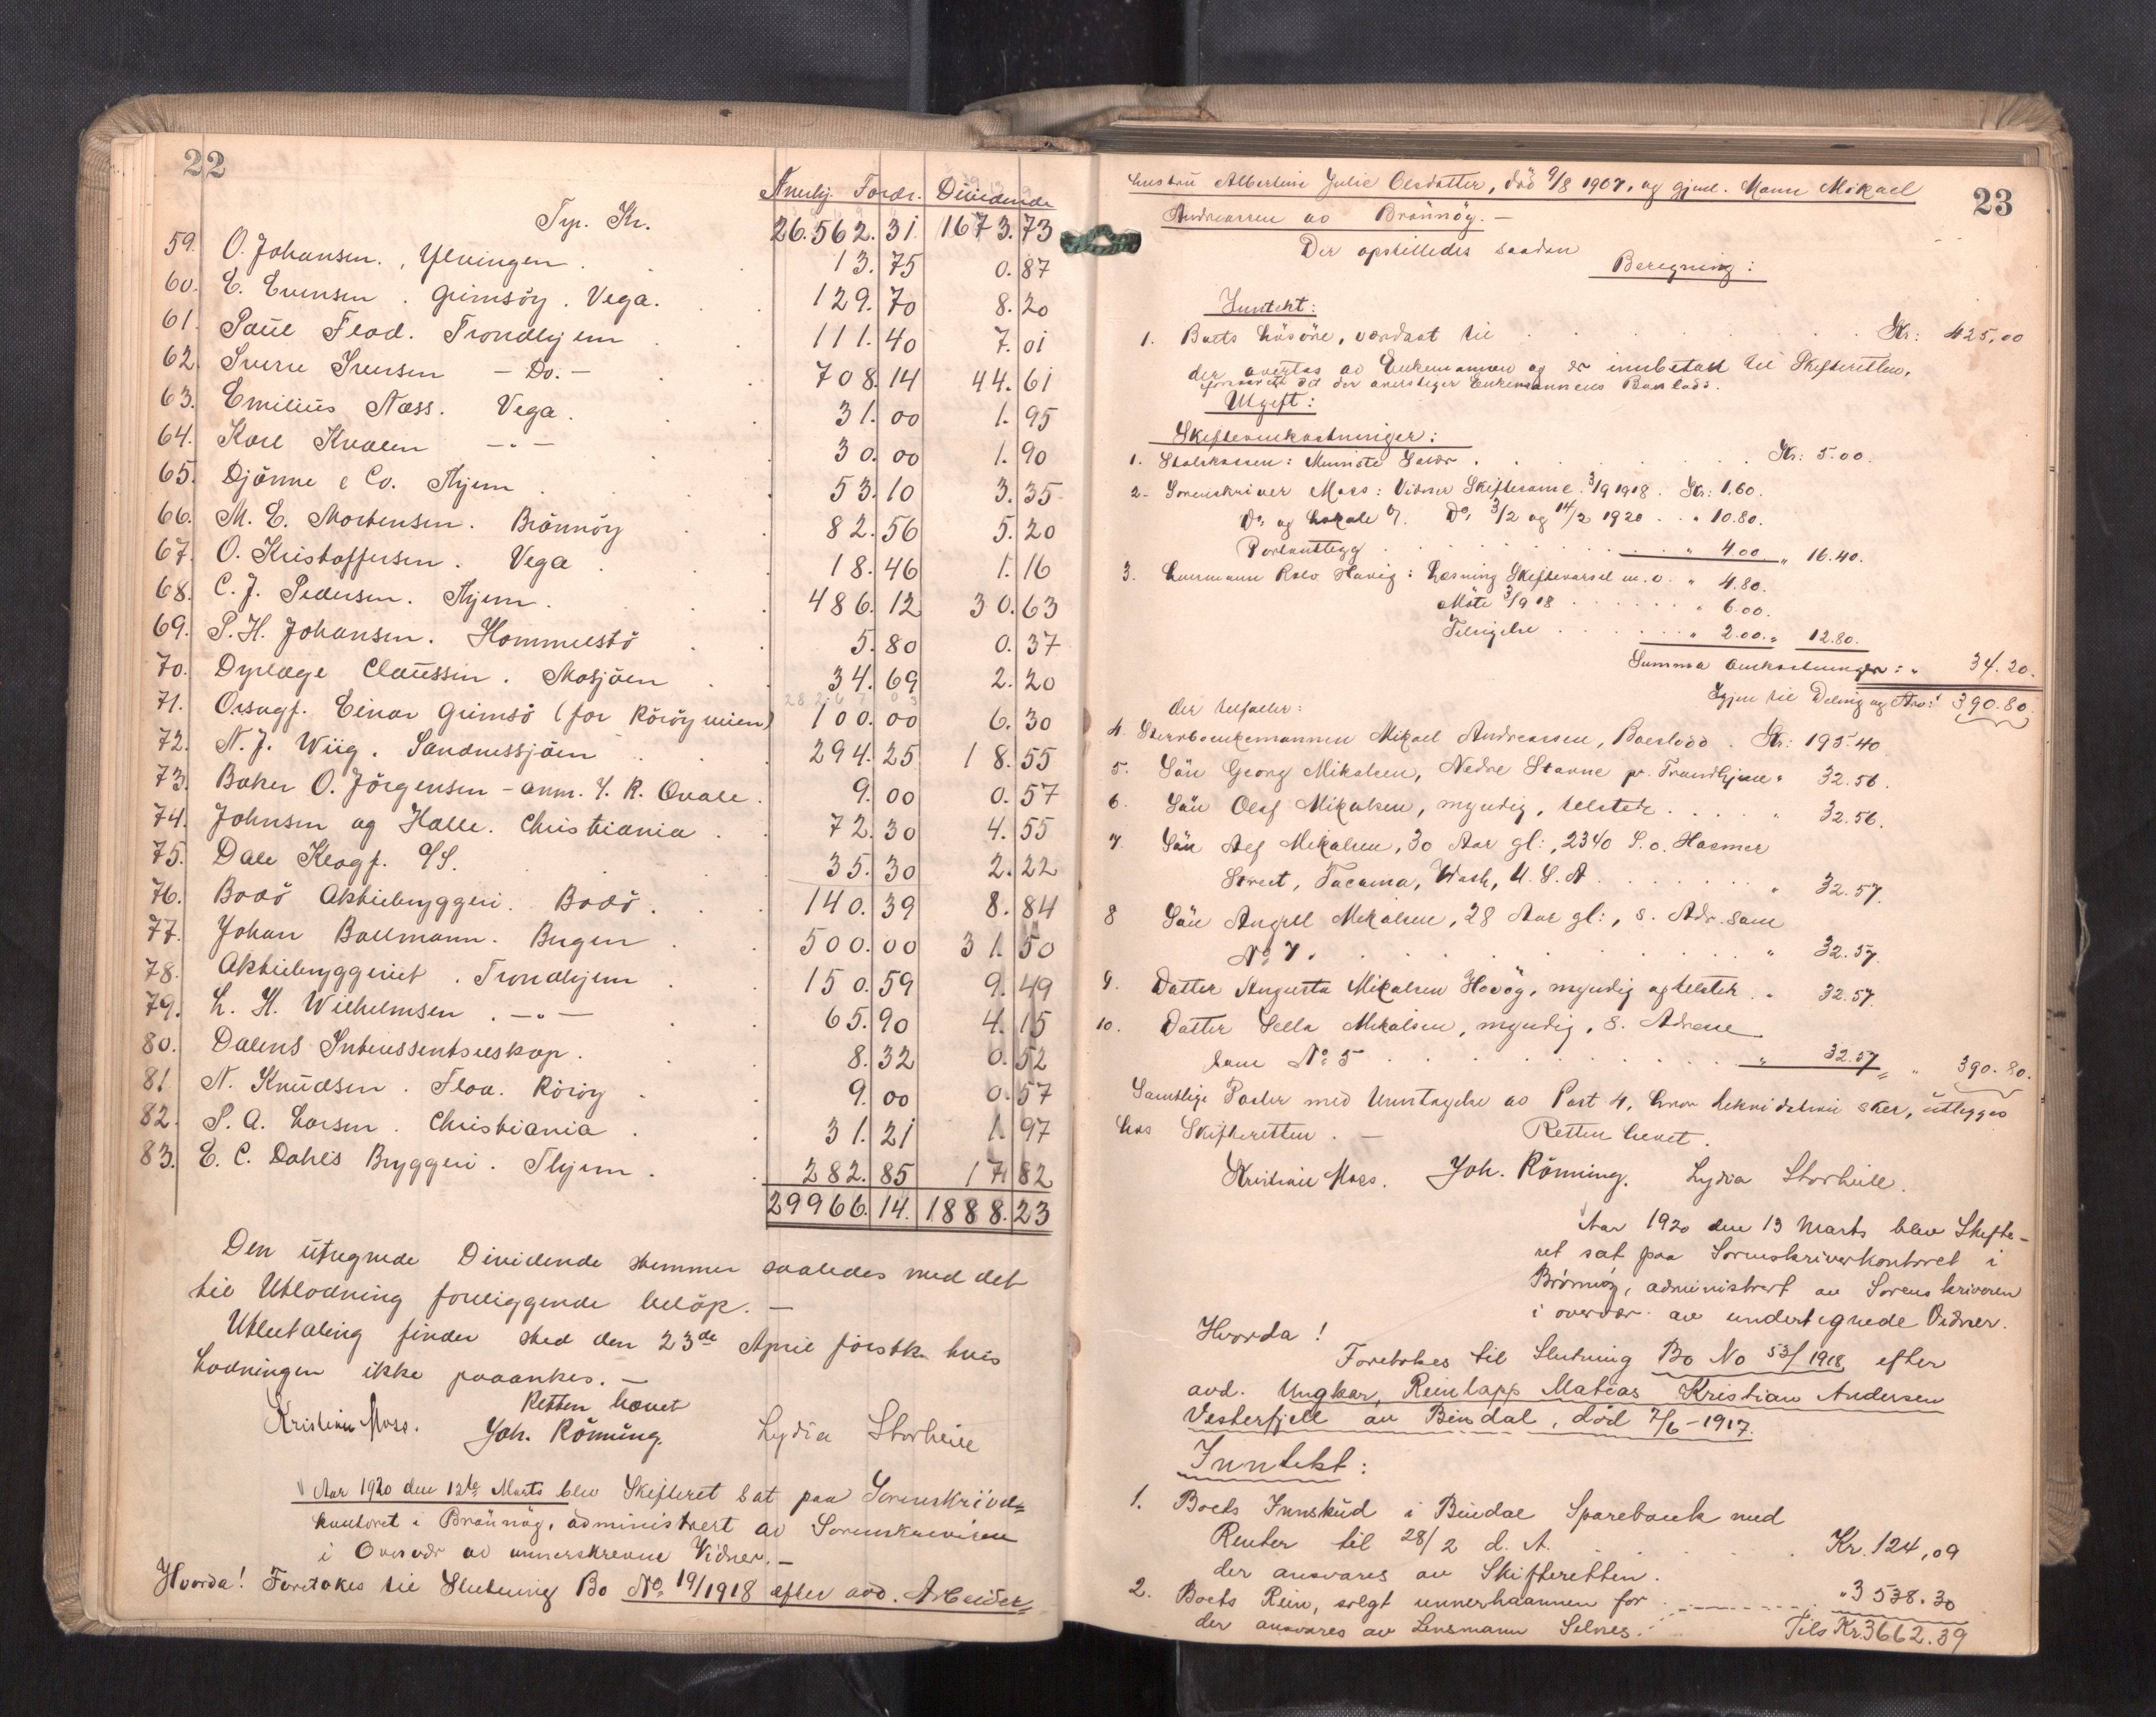 22
Anerkj. Fordr. Dividende
Trp. Kr. 26.562.31 1673.73
59. O. Johansen., Ylvingen. 13.75 0.87
60. E. Evensen. Grimsöy. Vega. 129.70 8.20
61. Paul Flod. Trondhjem 111.40 7.01
62. Sverre Iversen - Do. - 708.14 44.61
63. Emilius Næss. Vega. 31.00 1.95
64. Karl Kvalen -"- 30.00 1.90
65. Djönne & Co. Thjem 53.10 3.35
66. M. E. Mortensen. Brönnöy 82.56 5.20
67. O. Kristoffersen. Vega 18.46 1.16
68. C. J. Pedersen. Thjem. 486.12 30.63
69. P. H. Johansen. Hommelstö 5.80 0.37
70. Dyrlæge Claussen. Mosjöen 34.69 2.20
71. Orsagf. Einar Grimsö (for Röröymien) 100.00 6.30
72. N. J. Wiig. Sandnessjöen 294.25 18.55
73. Baker O. Jörgensen - anm. 4. R. Qvale. 9.00 0.57
74. Johnsen og Halle. Christiania 72.30 4.55
75. Dale Klagf. A/S. 35.30 2.22
76. Bodö Aktiebryggeri. Bodö. 140.39 8.84
77. Johan Bollmann. Bergen 500.00 31.50
78. Aktiebryggeriet. Trondhjem 150.59 9.49
79. L. H. Wilhelmsen. -"- 65.90 4.15
80. Dalens Interessentselskap. 8.32 0.52
81. N. Knudsen. Floa. Röröy 9.00 0.57
82. P. A. Larsen. Christiania 31.21 1.97
83. E. C. Dahls Bryggeri. Thjem. 282.85 17.82
29966.14. 1888.23
Den utregnede Dividende stemmer saaledes med det
til Utlodning foreliggende belöp. —
Utbetaling finder sted den 23de April förstk. hvis
Lodningen ikke paaankes. —
Retten hævet
Kristian Moss. Joh. Rönning. Lydia Storheil
Aar 1920 den 12te Marts blev Skifteret sat paa Sorenskriver=
kontoret i Brönnöy, administrert av Sorenskriveren
i Overvær av unnerskrevne Vidner. —
Hvorda! Foretokes til Slutning Bo No. 19/1918 efter avd. Arbeider=
23
hustru Albertine Julie Olsdatter, död 9/8 1907, og gjenl. Mann Mikael
Andreassen av Brönnöy. —
Der opstilledes saadan
Beregning:
Inntekt:
1. Boets Lösöre, værdsat til Kr: 425,00
der overtas av Enkemannen og er innbetalt til Skifteretten,
forsaavidt det der overstiger Enkemannens Boeslodd.
Utgift:
Skifteomkostninger:
1. Statskassen: Minste Gebyr. Kr: 5.00.
2. Sorenskriver Moss: Vidner Skiftesaml. 3/9 1918. Kr: 1.60.
Do. og Lokale 9. Do. 3/2 og 14/2 1920 " 10.80.
Portoutlegg " 4.00 " 16.40.
3. Lensmann Rolv Havig: Læsning Skiftevarsel m.v. " 4.80.
Möte 3/9 18 " 6.00.
Tilsigelse " 2.00. " 12.80.
Summa Omkostninger: " 34.20.
Igjen til Deling og Arv: 390.80.
der tilfaller:
4. Sterboenkemannen Mikael Andreassen, Boeslodd. Kr: 195.40
5. Sön Georg Mikalsen, Nedre Stavne pr. Trondhjem " 32.56.
6. Sön Olaf Mikalsen, myndig, tilstede " 32.56.
7. Sön Alf Mikalsen, 30 Aar gl:, 2340 S. o. Hosmer
Street, Tacoma, Wash, U. S. A " 32.57.
8 Sön Angell Mikalsen, 28 Aar gl:, s. Adr. som
No 7. " 32.57.
9. Datter Augusta Mikalsen Havög, myndig og tilstede. " 32.57.
10. Datter Sella Mikalsen, myndig, s. Adresse
som No 5 " 32.57 " 390.80.
Samtlige Poster med Unntagelse av Post 4, hvor Likvidation sker, utlegges
hos Skifteretten. — Retten hevet.
Kristian Moss. Joh. Rönning. Lydia Storheill.
Aar 1920 den 13 Marts blev Skifte-
ret sat paa Sorenskriverkontoret i
Brönnöy, administrert av Sorenskriveren
i overvær av undertegnede Vidner.
Hvorda!
Foretokes til Slutning Bo No 53/1918 efter
avd. Ungkar, Reinlapp Matias Kristian Andersen
Vesterfjell av Bindal, död 7/6 - 1917.
Inntekt:
1. Boets Innskud i Bindal Sparebank med
Renter til 28/2 d. A. Kr. 124,09
der ansvares av Skifteretten.
2. Boets Rein, solgt unnerhaannen for " 3538.30
der ansvares av Lensmann Selnes. Tils Kr. 3662.39